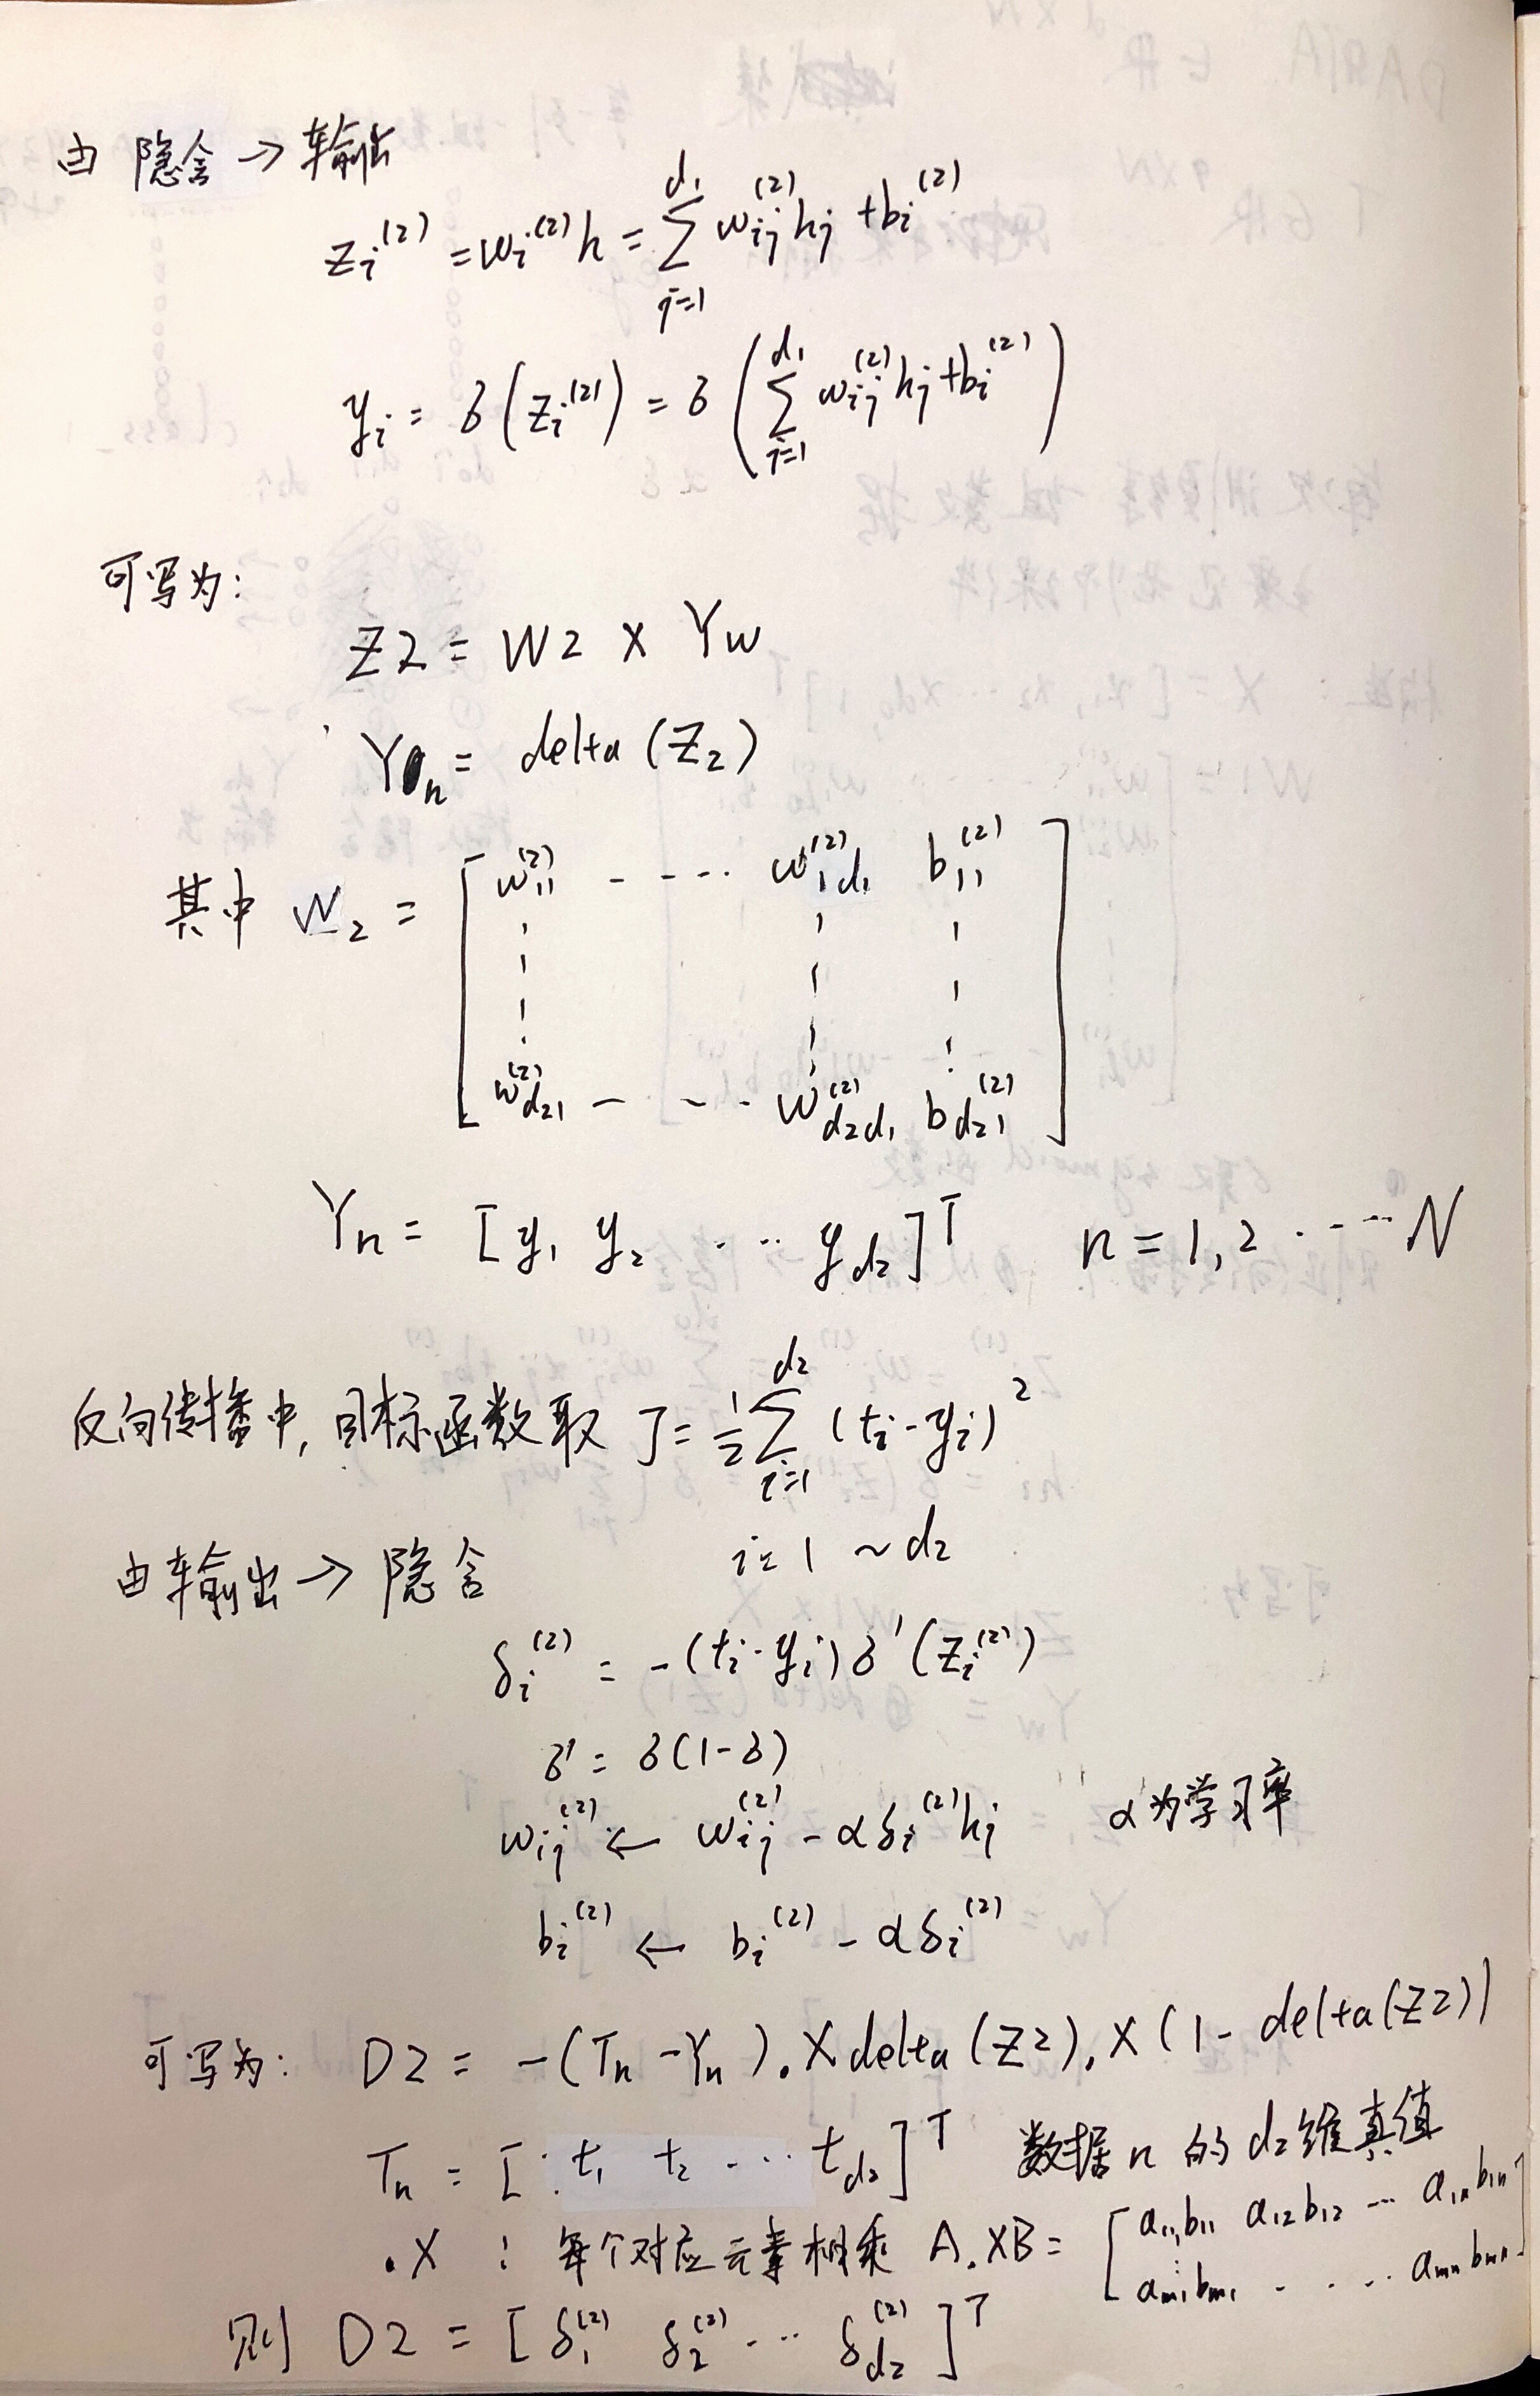 由 隐含 → 输出
z_i^(2) = w_i^(2) h = Σ_{j=1}^{d_1} w_ij^(2) h_j + b_i^(2)
y_i = δ(z_i^(2)) = δ(Σ_{j=1}^{d_1} w_ij^(2) h_j + b_i^(2))
可写为:
Z2 = W2 × Yw
Y_n = delta (Z_2)
其中 W_2 = [ w_11^(2) - - ··· w_1d_1^(2) b_11^(2)
w_d_21^(2) - - ·· w_d_2d_1^(2) b_d_21^(2) ]
Y_n = [y_1 y_2 ··· y_d_2]^T n = 1,2 ····· N
反向传播中, 目标函数取 J = 1/2 Σ_{i=1}^{d_2} (t_i - y_i)^2
i = 1 ~ d_2
由输出 → 隐含
δ_i^(2) = -(t_i - y_i) δ'(z_i^(2))
δ' = δ(1-δ)
w_ij^(2) ← w_ij^(2) - αδ_i^(2) h_j α为学习率
b_i^(2) ← b_i^(2) - αδ_i^(2)
可写为: D2 = -(T_n - Y_n).X delta(Z2).X(1- delta(Z2))
T_n = [ t_1 t_2 ··· t_d_2]^T 数据n的d_2维真值
.X : 每个对应元素相乘 A.XB = [ a_11b_11 a_12b_12 ··· a_1nb_1n
a_m1b_m1 · · ··· a_mnb_mn ]
则 D2 = [δ_1^(2) δ_2^(2) ··· δ_d_2^(2)]^T